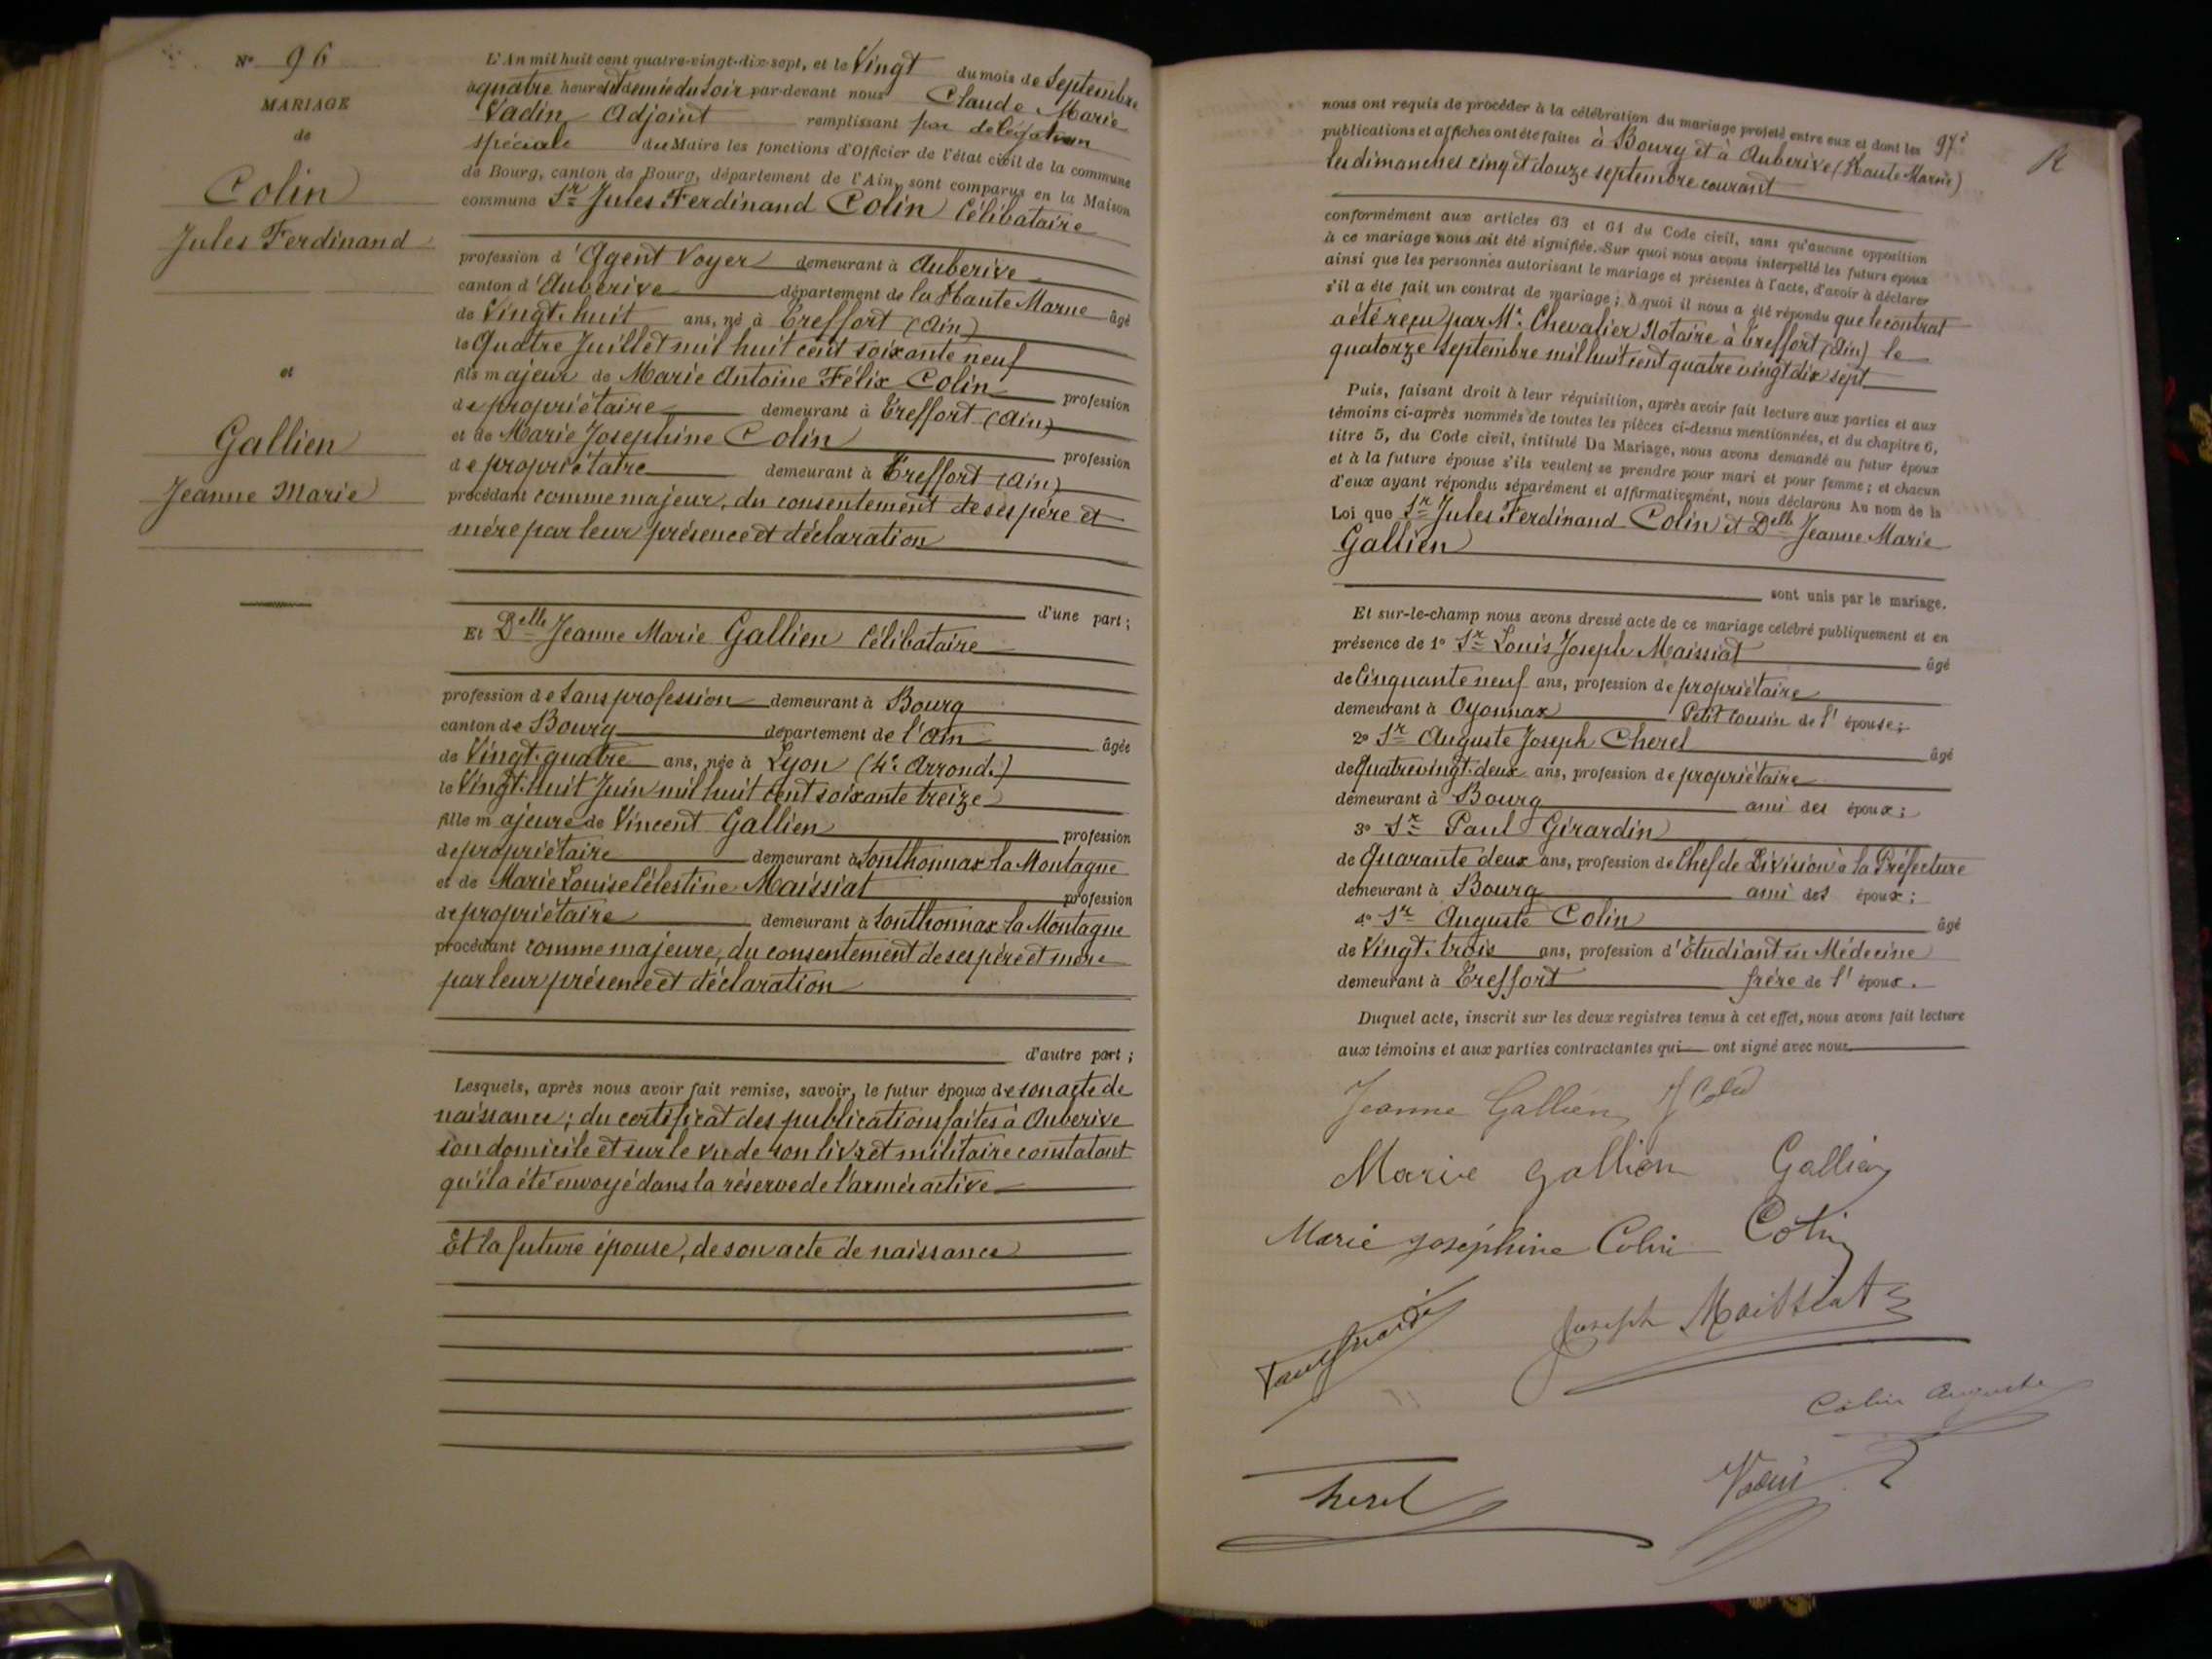 N° 96
MARIAGE
de
Colin
Jules Ferdinand
et
Gallien
Jeanne Marie
L'An mil huit cent quatre-vingt-dix-sept, et le Vingt du mois de Septembre
à quatre heures et demie du Soir par-devant nous Claude Marie
Vadin Adjoint remplissant par délégation
spéciale du Maire les fonctions d'Officier de l'état civil de la commune
de Bourg, canton de Bourg, département de l'Ain, sont comparus en la Maison
commune Sr Jules Ferdinand Colin Célibataire
profession d'Agent Voyer demeurant à Auberive
canton d'Auberive département de la Haute Marne âgé
de Vingt-huit ans, né à Treffort (Ain)
le Quatre Juillet mil huit cent soixante neuf
fils majeur de Marie Antoine Félix Colin profession
de propriétaire demeurant à Treffort (Ain)
et de Marie Josephine Colin profession
de propriétaire demeurant à Treffort (Ain)
procédant comme majeur, du consentement de ses père et
mère par leur présence et déclaration
d'une part;
Et Delle Jeanne Marie Gallien Célibataire
profession de Sans profession demeurant à Bourg
canton de Bourg département de l'Ain âgée
de Vingt-quatre ans, née à Lyon (4e Arrond.)
le Vingt-huit Juin mil huit cent soixante treize
fille majeure de Vincent Gallien profession
de propriétaire demeurant à Sonthonnax la Montagne
et de Marie Louise Célestine Maissiat profession
de propriétaire demeurant à Sonthonnax la Montagne
procédant comme majeure, du consentement de ses père et mère
par leur présence et déclaration
d'autre part;
Lesquels, après nous avoir fait remise, savoir, le futur époux de son acte de
naissance; du certificat des publications faites à Auberive
son domicile et sur le vu de son livret militaire constatant
qu'il a été envoyé dans la réserve de l'armée active
Et la future épouse, de son acte de naissance
97e
R
nous ont requis de procéder à la célébration du mariage projeté entre eux et dont les
publications et affiches ont été faites à Bourg et à Auberive (Haute Marne)
les dimanches cinq et douze septembre courant
conformément aux articles 63 et 64 du Code civil, sans qu'aucune opposition
à ce mariage nous ait été signifiée. Sur quoi nous avons interpellé les futurs époux
ainsi que les personnes autorisant le mariage et présentes à l'acte, d'avoir à déclarer
s'il a été fait un contrat de mariage; à quoi il nous a été répondu que le contrat
a été reçu par Me Chevalier Notaire à Treffort (Ain) le
quatorze Septembre mil huit cent quatre vingt dix sept
Puis, faisant droit à leur réquisition, après avoir fait lecture aux parties et aux
témoins ci-après nommés de toutes les pièces ci-dessus mentionnées, et du chapitre 6,
titre 5, du Code civil, intitulé Du Mariage, nous avons demandé au futur époux
et à la future épouse s'ils veulent se prendre pour mari et pour femme; et chacun
d'eux ayant répondu séparément et affirmativement, nous déclarons Au nom de la
Loi que Sr Jules Ferdinand Colin et Delle Jeanne Marie
Gallien
sont unis par le mariage.
Et sur-le-champ nous avons dressé acte de ce mariage célébré publiquement et en
présence de 1° Sr Louis Joseph Maissiat âgé
de Cinquante neuf ans, profession de propriétaire
demeurant à Oyonnax Petit cousin de l'épouse;
2° Sr Auguste Joseph Cherel âgé
de Quatre vingt-deux ans, profession de propriétaire
demeurant à Bourg ami des époux;
3° Sr Paul Girardin
de Quarante deux ans, profession de Chef de Division à la Préfecture
demeurant à Bourg ami des époux;
4° Sr Auguste Colin âgé
de Vingt-trois ans, profession d'Etudiant en Médecine
demeurant à Treffort frère de l'époux.
Duquel acte, inscrit sur les deux registres tenus à cet effet, nous avons fait lecture
aux témoins et aux parties contractantes qui ont signé avec nous
Jeanne Gallien J Colin
Marie Gallien Gallien
Marie Joséphine Colin Colin
Joseph Maissiat
Colin Auguste
Cherel